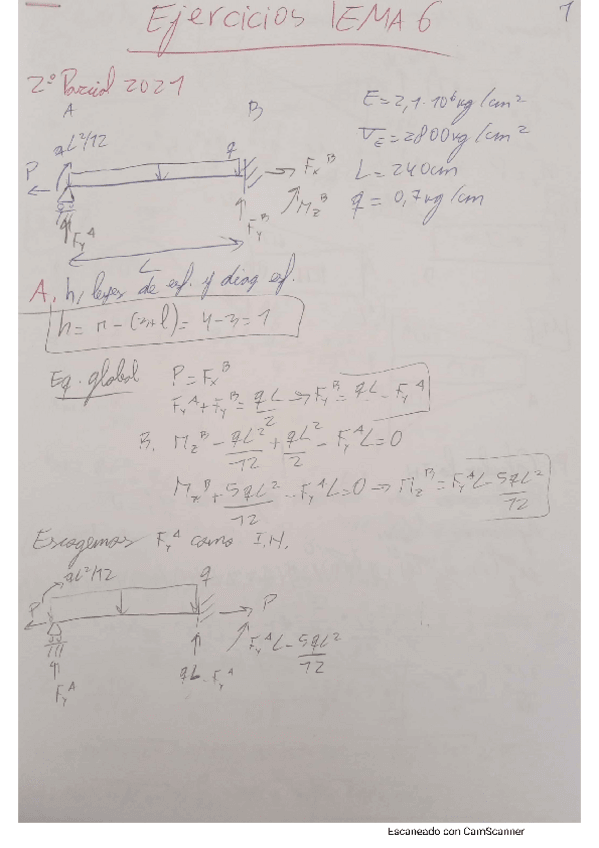 Ejercicios TEMA 6
1
2º Parcial 2021
A
B
E = 2,1·10⁶ kg/cm²
qL²/12
q
σE = 2800 kg/cm²
P
FxB
L = 240cm
MzB
q = 0,7 kg/cm
FyA
FyB
L
A. h, leyes de esf. y diag esf.
h = r - (3+l) = 4-3 = 1
Eq. global P = FxB
FyA + FyB = qL/2 → FyB = qL - FyA
B. MzB - qL²/12 + qL²/2 - FyA L = 0
MzB + 5qL²/12 - FyA L = 0 → MzB = FyA L - 5qL²/12
Escogemos FyA como I.H.
qL²/12
q
P
P
FyA L - 5qL²/12
qL - FyA
FyA
Escaneado con CamScanner